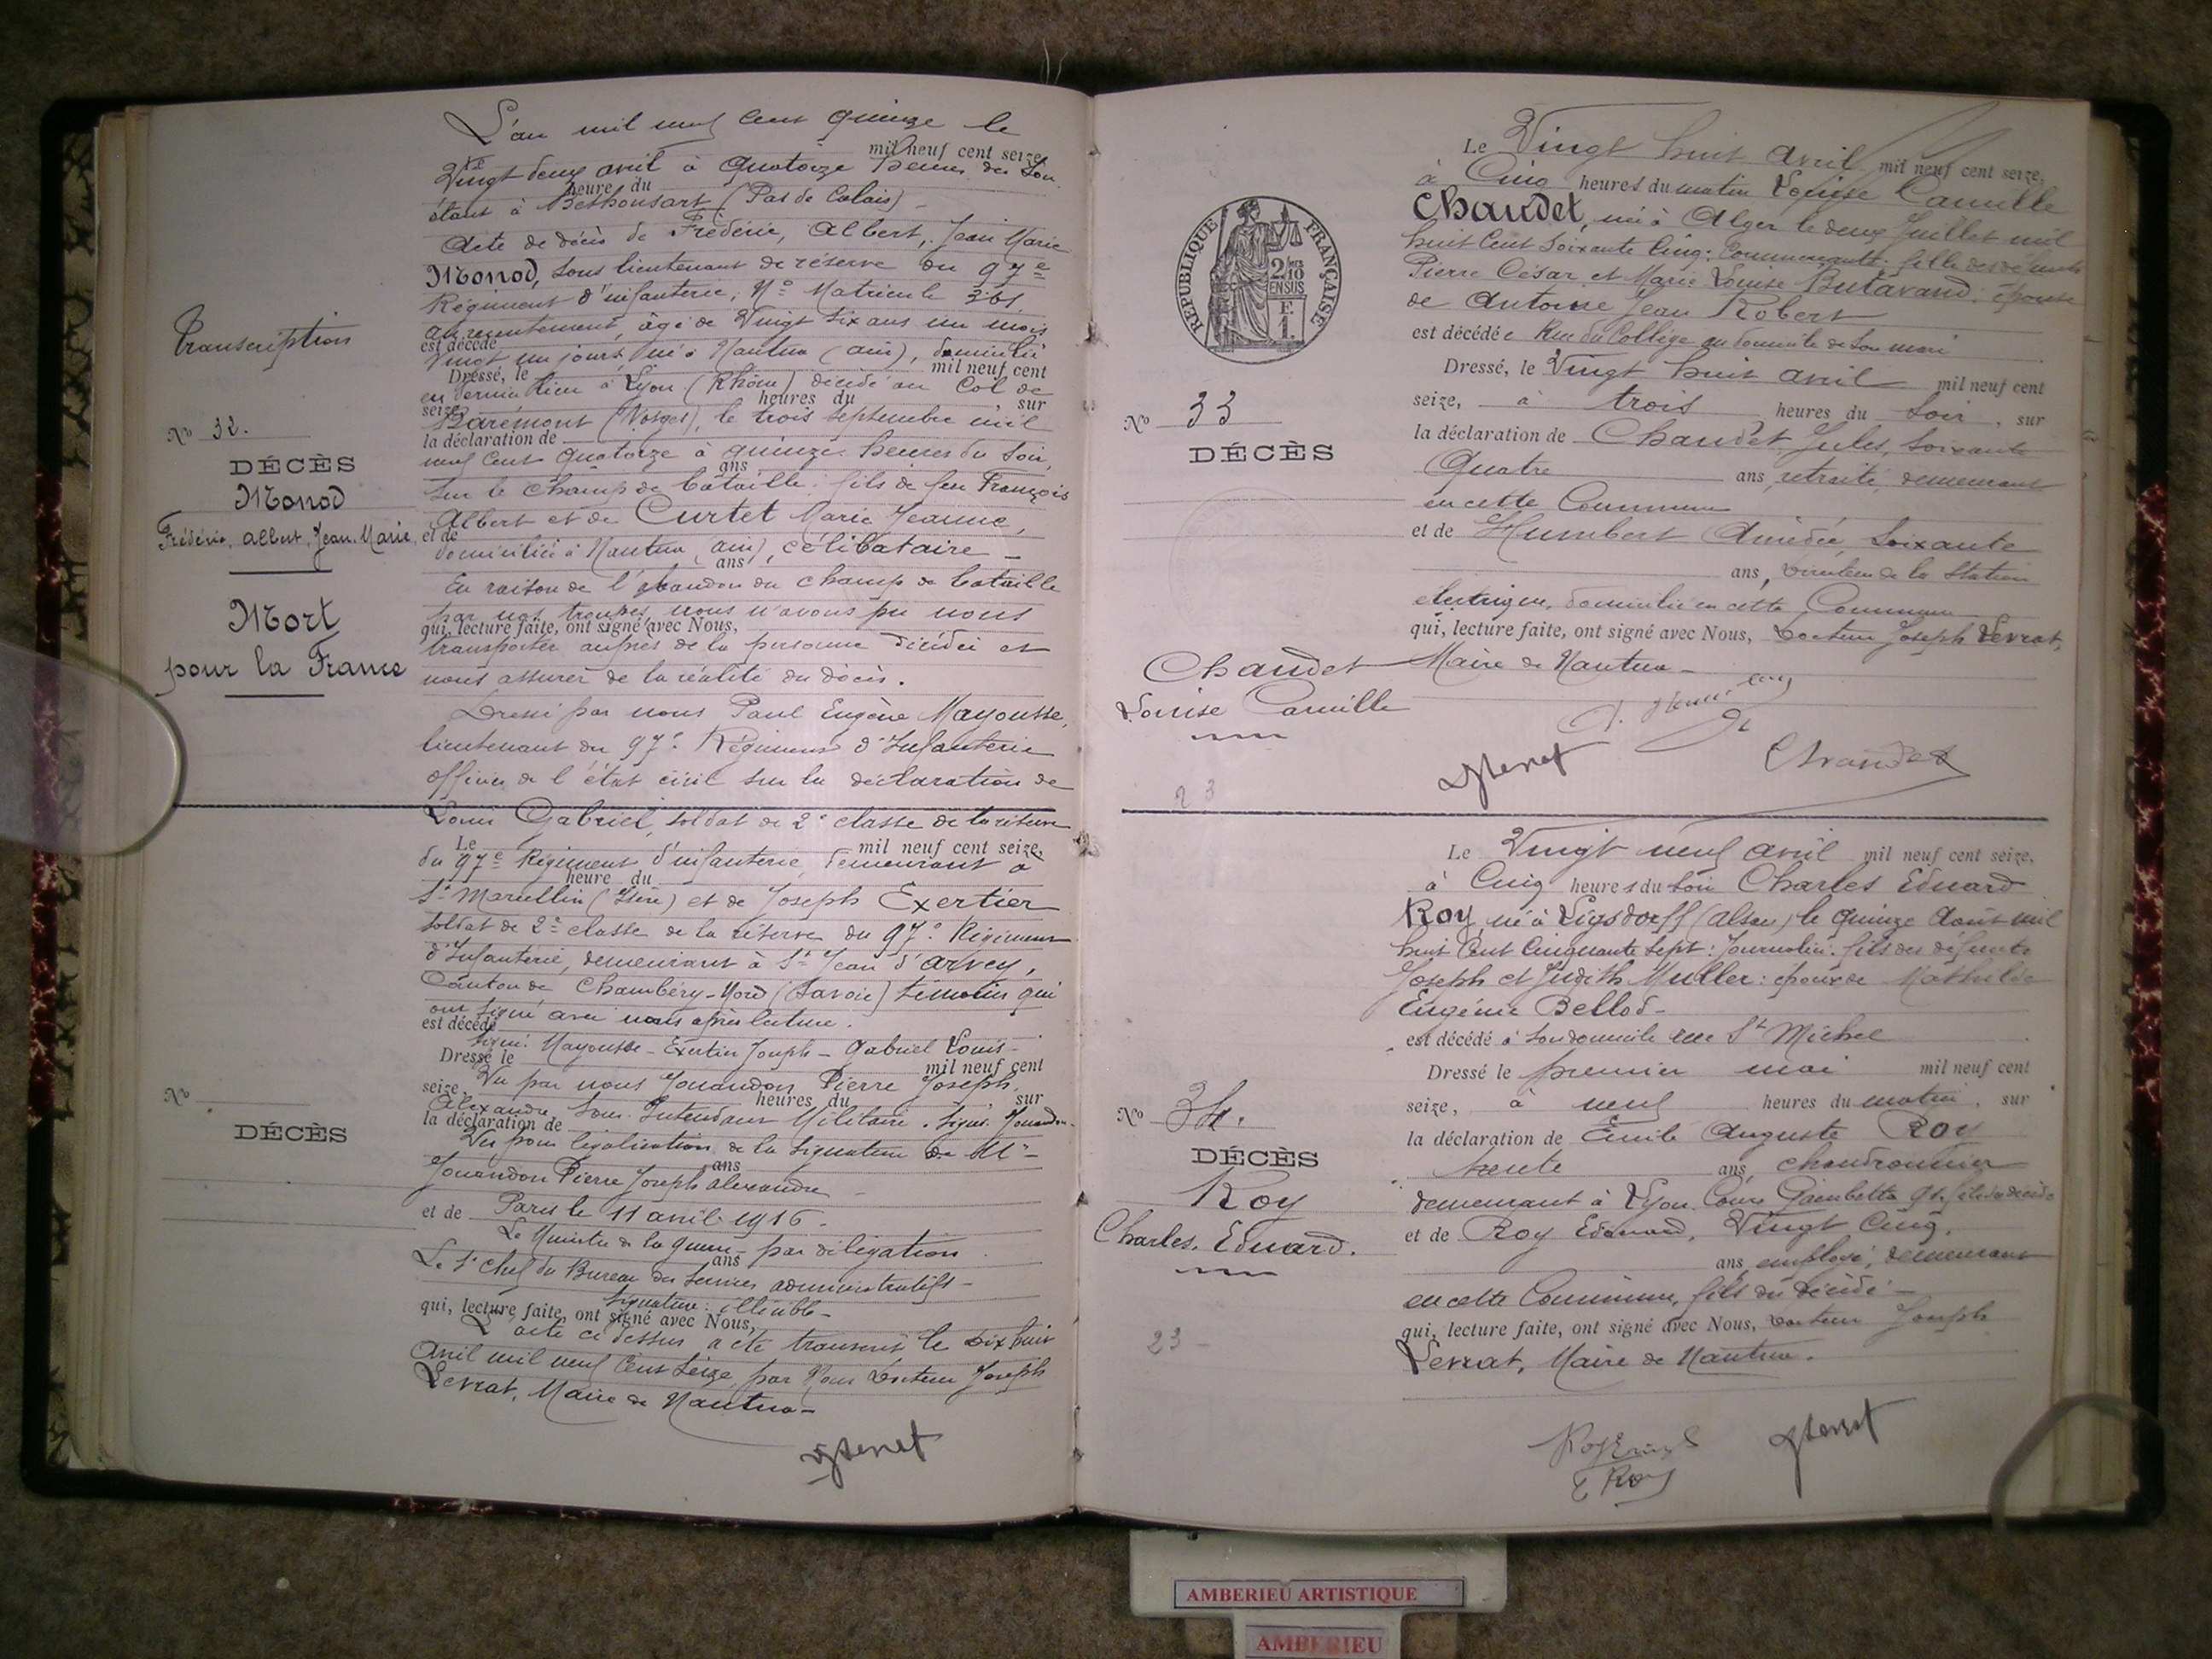 L'an mil neuf cent quinze le
mil neuf cent seize,
Vingt deux avril à Quatorze heures du Soir
heure du
étant à Béthonsart (Pas de Calais) -
Acte de décès de Frédéric, Albert, Jean Marie
Monod, sous lieutenant de réserve du 97e
Régiment d'infanterie, No Matricule 361
au recrutement, âgé de Vingt six ans un mois
est décédé
Vingt un jours, né à Nantua (Ain), domicilié
Dressé, le mil neuf cent
en dernier lieu à Lyon (Rhône) décédé au Col de
seize, heures du , sur
Barémont (Vosges), le trois septembre mil
la déclaration de
neuf cent quatorze à quinze heures du soir,
ans
sur le champ de bataille: fils de feu François
Albert et de Curtet Marie Jeanne,
et de
domiciliée à Nantua (ain), célibataire -
ans
En raison de l'abandon du champ de bataille
par nos troupes, nous n'avons pu nous
qui, lecture faite, ont signé avec Nous,
transporter auprès de la personne décédée et
nous assurer de la réalité du décès.
Dressé par nous Paul Eugène Mayousse,
lieutenant du 97e Régiment d'Infanterie
officier de l'état civil sur la déclaration de
Louis Gabriel, soldat de 2e classe de la réserve
Le mil neuf cent seize,
du 97e Régiment d'infanterie, demeurant à
heure du
St Marcellin (Isère) et de Joseph Exertier
soldat de 2e classe de la réserve du 97e Régiment
d'Infanterie, demeurant à St Jean d'Arvey,
Canton de Chambéry-Nord (Savoie) témoins qui
ont signé avec nous après lecture.
est décédé
Signé: Mayousse - Exertier Joseph - Gabriel Louis -
Dressé le mil neuf cent
Vu par nous Jouandon Pierre Joseph
seize, heures du , sur
Alexandre, Sous-Intendant Militaire. Signé: Jouandon.
la déclaration de
Vu pour légalisation de la signature de Mr
ans
Jouandon Pierre Joseph Alexandre
et de Paris le 11 avril 1916 -
Le Ministre de la Guerre - par délégation
ans
Le S/ Chef du Bureau des Services administratifs -
Signature: illisible -
qui, lecture faite, ont signé avec Nous,
L'acte ci dessus a été transcrit le Dix huit
Avril mil neuf Cent Seize, par Nous Docteur Joseph
Levrat, Maire de Nantua -
Transcription
No 32.
DÉCÈS
Monod
Frédéric, Albert, Jean-Marie
Mort
pour la France
No
DÉCÈS
REPUBLIQUE FRANÇAISE
2/10
EN SUS
F.
1.
No 33
DÉCÈS
Chaudet
Louise Camille
23
Le Vingt huit Avril mil neuf cent seize,
à Cinq heures du matin Louise Camille
Chaudet, née à Alger le deux Juillet mil
huit cent soixante cinq: Commerçante: fille des défunts
Pierre César et Marie Louise Butavand: épouse
de Antoine Jean Robert
est décédée Rue du Collège au domicile de son mari
Dressé, le Vingt huit avril mil neuf cent
seize, à trois heures du Soir, sur
la déclaration de Chaudet Jules, Soixante
Quatre ans, retraité, demeurant
en cette Commune
et de Humbert Amédée, Soixante
ans, Directeur de la Station
électrique, domicilié en cette Commune
qui, lecture faite, ont signé avec Nous, Docteur Joseph Levrat,
Maire de Nantua -
Chaudet
No 34.
DÉCÈS
Roy
Charles, Eduard.
23 -
Le Vingt neuf avril mil neuf cent seize,
à Cinq heures du soir Charles Eduard
Roy, né à Ligsdorff (Alsace) le quinze Août mil
huit Cent Cinquante Sept: Journalier: fils des défunts
Joseph et Judith Muller: époux de Mathilde
Eugénie Bellod -
est décédé à son domicile rue St Michel
Dressé le premier mai mil neuf cent
seize, à neuf heures du matin, sur
la déclaration de Émile Auguste Roy
trente ans, chaudronnier
demeurant à Lyon, Cours Gambetta 91, fils du décédé
et de Roy Edouard, Vingt Cinq,
ans, employé, demeurant
en cette Commune, fils du décédé -
qui, lecture faite, ont signé avec Nous, Docteur Joseph
Levrat, Maire de Nantua.
E Roy
AMBERIEU ARTISTIQUE
AMBERIEU